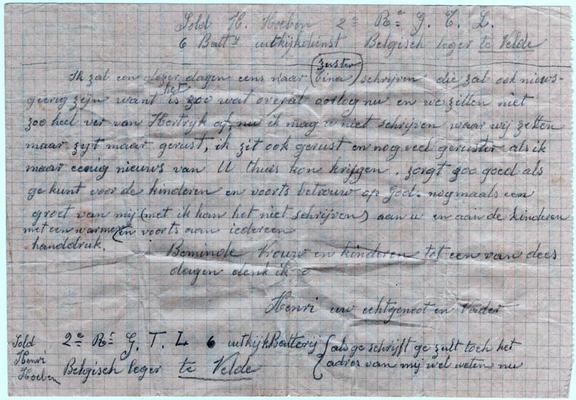 Sold H. Hoeben 2e Ré G. T. L.
6 Batty uitkijkdienst Belgisch leger te Velde
zuster
Ik zal een dezer dagen eens naar (Tina) schrijven die zal ook nieuws-
gierig zijn want het is zoo wat overal oorlog nu en we zitten niet
zoo heel ver van Kortryk af, nu ik mag u niet schrijven waar wij zitten
maar zyt maar gerust, ik zit ook gerust en nog veel geruster als ik
maar eenig nieuws van U thuis kone krijgen. zorgt zoo goed als
ge kunt voor de kinderen en voorts betrouw op God. nogmaals een
groet van mij (met ik kan het niet schrijven) aan u en aan de kinderen
met een warme en voorts aan iedereen
handdruk.
Beminde Vrouw en kinderen tot een van dees
daegen denk ik
Henri uw echtgenoot en Vader
Sold Henri Hoeben
2e Ré G. T. L 6 uitkijk Battery
Belgisch leger te Velde
(als ge schrijft ge zult toch het
adres van mij wel weten nu